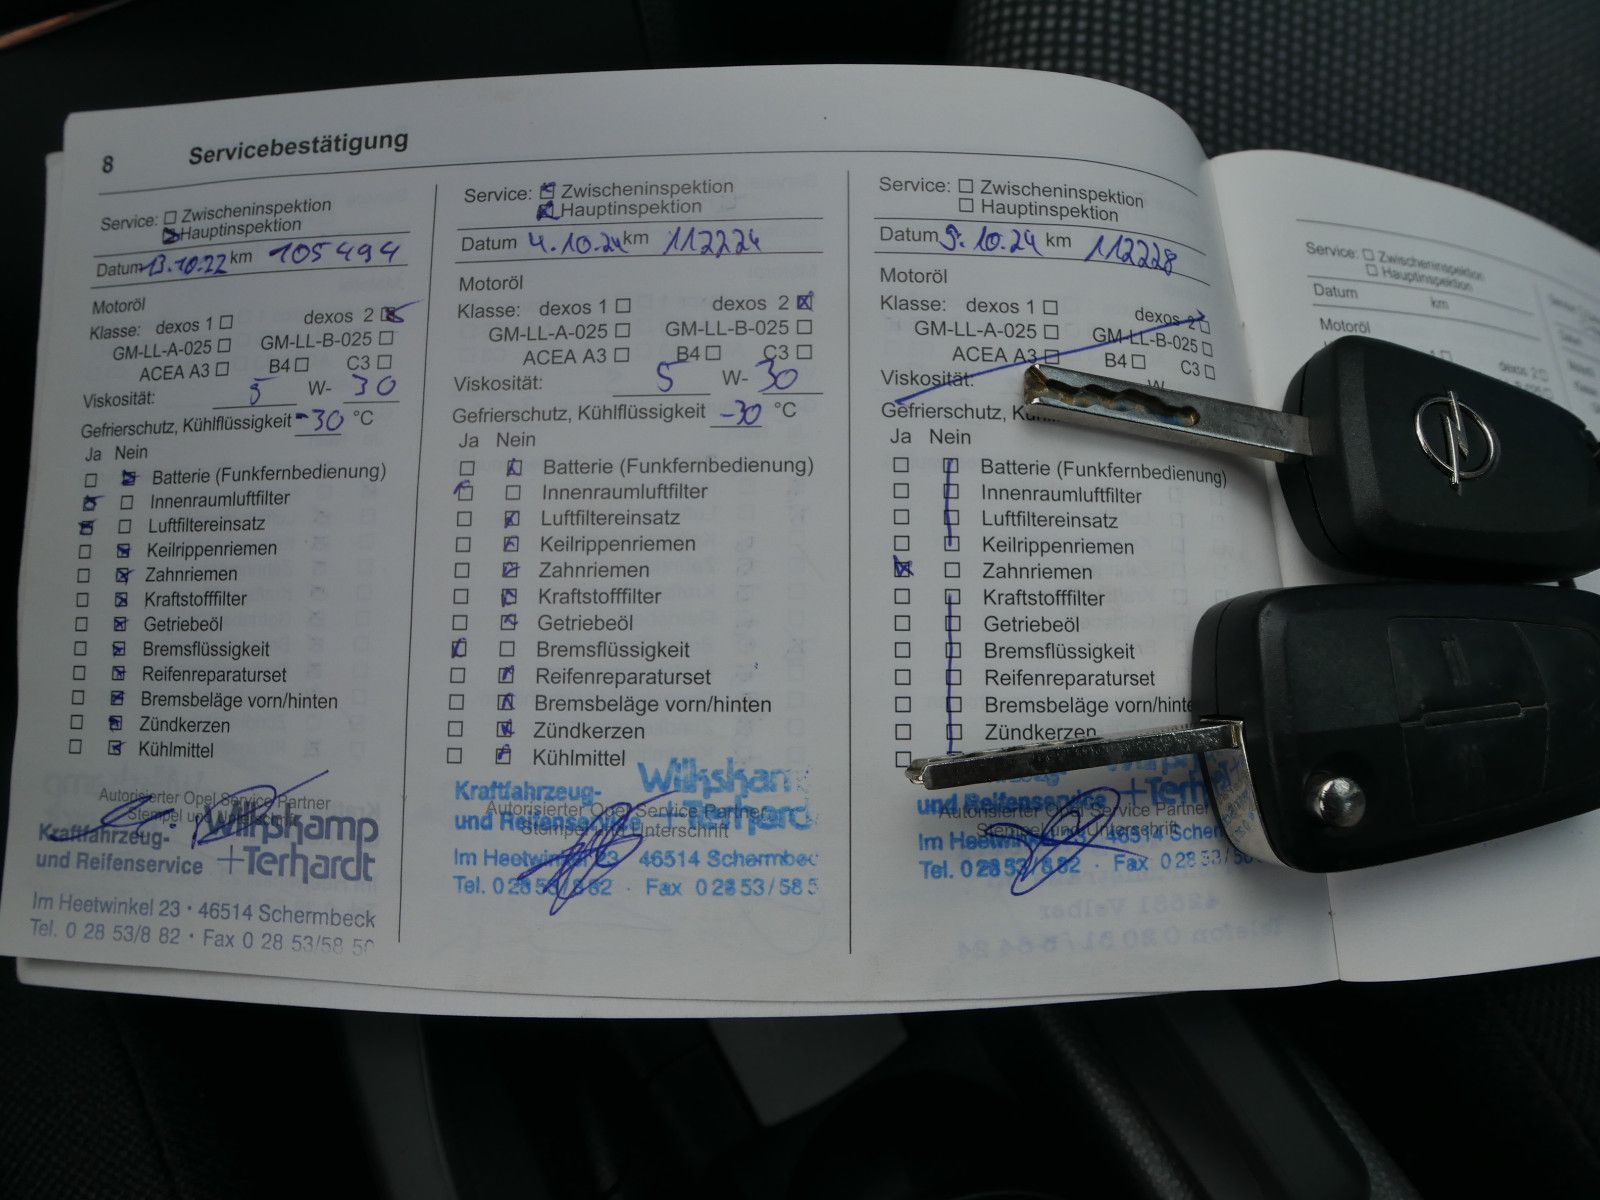 8 Servicebestätigung
Service: Zwischeninspektion
Hauptinspektion
Datum 13.10.22 km 105494
Motoröl
Klasse: dexos 1 dexos 2
GM-LL-A-025 GM-LL-B-025
ACEA A3 B4 C3
Viskosität: 5 W- 30
Gefrierschutz, Kühlflüssigkeit -30 °C
Ja Nein
Batterie (Funkfernbedienung)
Innenraumluftfilter
Luftfiltereinsatz
Keilrippenriemen
Zahnriemen
Kraftstofffilter
Getriebeöl
Bremsflüssigkeit
Reifenreparaturset
Bremsbeläge vorn/hinten
Zündkerzen
Kühlmittel
Autorisierter Opel Service Partner
Stempel und Unterschrift
Kraftfahrzeug- Wilkskamp
und Reifenservice +Terhardt
Im Heetwinkel 23 · 46514 Schermbeck
Tel. 0 28 53/8 82 · Fax 0 28 53/58
Service: Zwischeninspektion
Hauptinspektion
Datum 4.10.24 km 112224
Motoröl
Klasse: dexos 1 dexos 2
GM-LL-A-025 GM-LL-B-025
ACEA A3 B4 C3
Viskosität: 5 W- 30
Gefrierschutz, Kühlflüssigkeit -30 °C
Ja Nein
Batterie (Funkfernbedienung)
Innenraumluftfilter
Luftfiltereinsatz
Keilrippenriemen
Zahnriemen
Kraftstofffilter
Getriebeöl
Bremsflüssigkeit
Reifenreparaturset
Bremsbeläge vorn/hinten
Zündkerzen
Kühlmittel
Kraftfahrzeug- Wilkskam
Autorisierter Opel Service Partner
und Reifenservice +Terhard
Stempel und Unterschrift
Im Heetwinkel 23 46514 Schermbec
Tel. 0 28 53/8 82 · Fax 0 28 53/58 5
Service: Zwischeninspektion
Hauptinspektion
Datum 9.10.24 km 112228
Motoröl
Klasse: dexos 1 dexos 2
GM-LL-A-025 GM-LL-B-025
ACEA A3 B4 C3
Viskosität: W
Gefrierschutz,
Ja Nein
Batterie (Funkfernbedienung)
Innenraumluftfilter
Luftfiltereinsatz
Keilrippenriemen
Zahnriemen
Kraftstofffilter
Getriebeöl
Bremsflüssigkeit
Reifenreparaturset
Bremsbeläge vorn/hinte
Zündkerzen
und Reifenservice +Terha
Autorisierter Opel Service Partner
Stempel und Unterschrift
Im Hee 46514 Scher
Tel. 0 28 53/8 82 · Fax 0 28 53/58
Service: Zwischeninspektion
Hauptinspektion
Datum km
Motoröl
dexos 2